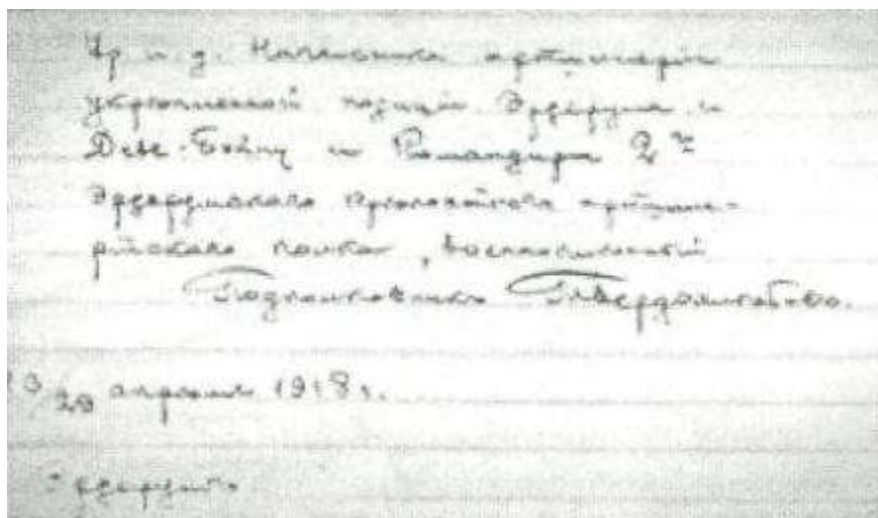 Вр. и. д. Начальника артиллеріи
укрѣпленной позиціи Эрзерума и
Деве-Бойну и Командиръ 2го
Эрзерумскаго крѣпостного артилле-
рійскаго полка, военноплѣнный
Подполковникъ Твердохлебовъ.
29 апрѣля 1918 г.